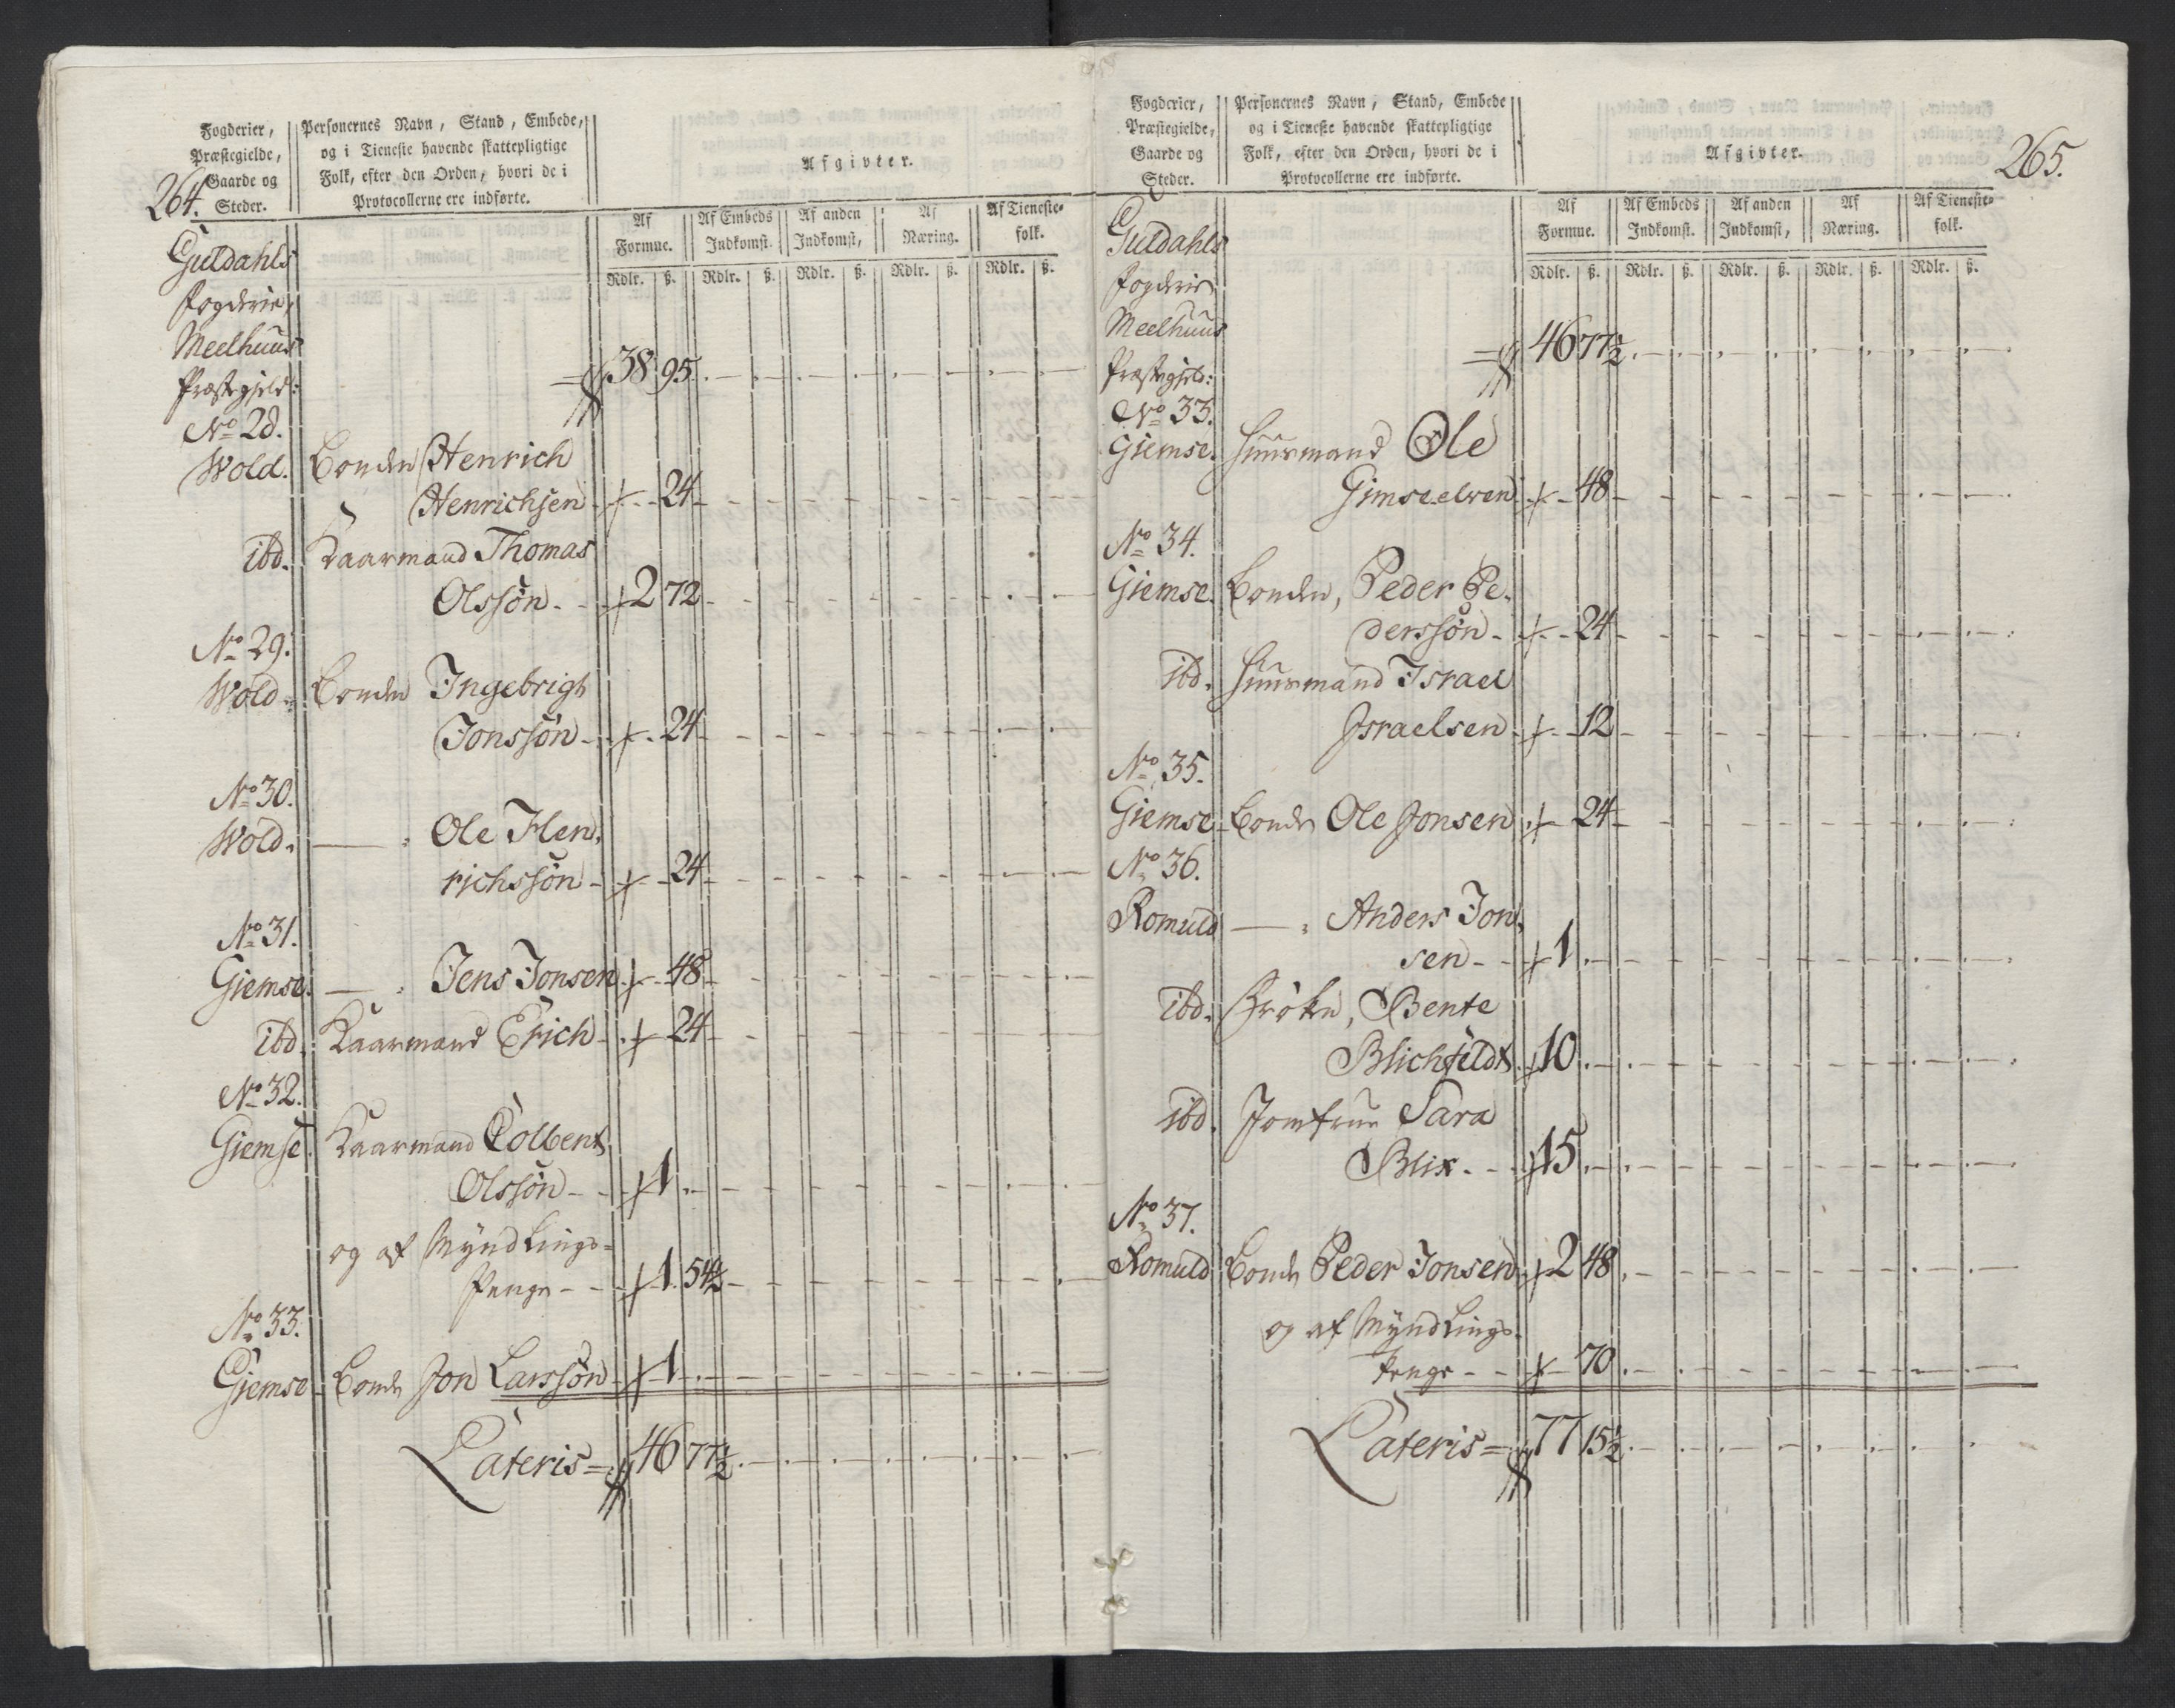 264.
Fogderier,
Præstegielde,
Gaarde og
Steder.
Personernes Navn, Stand, Embede,
og i Tieneste havende skattepligtige
Folk, efter den Orden, hvori de i
Protocollerne ere indførte.
Afgivter.
Af Formue. Af Embeds Indkomst. Af anden Indkomst, Af Næring. Af Tieneste-folk.
Rdlr. ß. Rdlr. ß. Rdlr. ß. Rdlr. ß. Rdlr. ß.
Guldahls
Fogderie,
Meelhuus
Præstegield: 38 95.
No 28.
Wold. Bonden Henrich
Henrichsen 24
ibd. Kaarmand Thomas
Olssøn 2 72
No 29.
Wold Bonden Ingebrigt
Jonssøn 24
No 30.
Wold. — Ole Hen-
richssøn 24
No 31.
Giemse. — Jens Jonsen 48
ibd. Kaarmand Erich 24
No 32.
Giemse Kaarmand Colbent
Olssøn 1
og af Myndlings-
Penge 1. 54½
No 33.
Giemse Bonde Jon Larssøn 1
Lateris 46 77½
265.
Fogderier,
Præstegielde,
Gaarde og
Steder.
Personernes Navn, Stand, Embede
og i Tieneste havende skattepligtige
Folk, efter den Orden, hvori de i
Protocollerne ere indførte.
Afgivter.
Af Formue. Af Embeds Indkomst. Af anden Indkomst, Af Næring. Af Tieneste-folk.
Rdlr. ß. Rdlr. ß. Rdlr. ß. Rdlr. ß. Rdlr. ß.
Guldahls
Fogderie,
Meelhuus
Præstegield: 46 77½
No 33.
Giemse. Huusmand Ole
Gimseelven 48
No 34.
Giemse. Bonden, Peder Pe-
derssøn 24
ibd. Huusmand Israel
Israelsen 12
No 35.
Giemse Bonde Ole Jonsen 24
No 36.
Romuld — Anders Jon-
sen 1
ibd. Frøken, Bente
Blichfeldt 10
ibd. Jomfrue Sara
Blix 15
No 37.
Romuld Bonde Peder Jonsen 2 48
og af Myndlings-
Penge 70
Lateris 77 15½